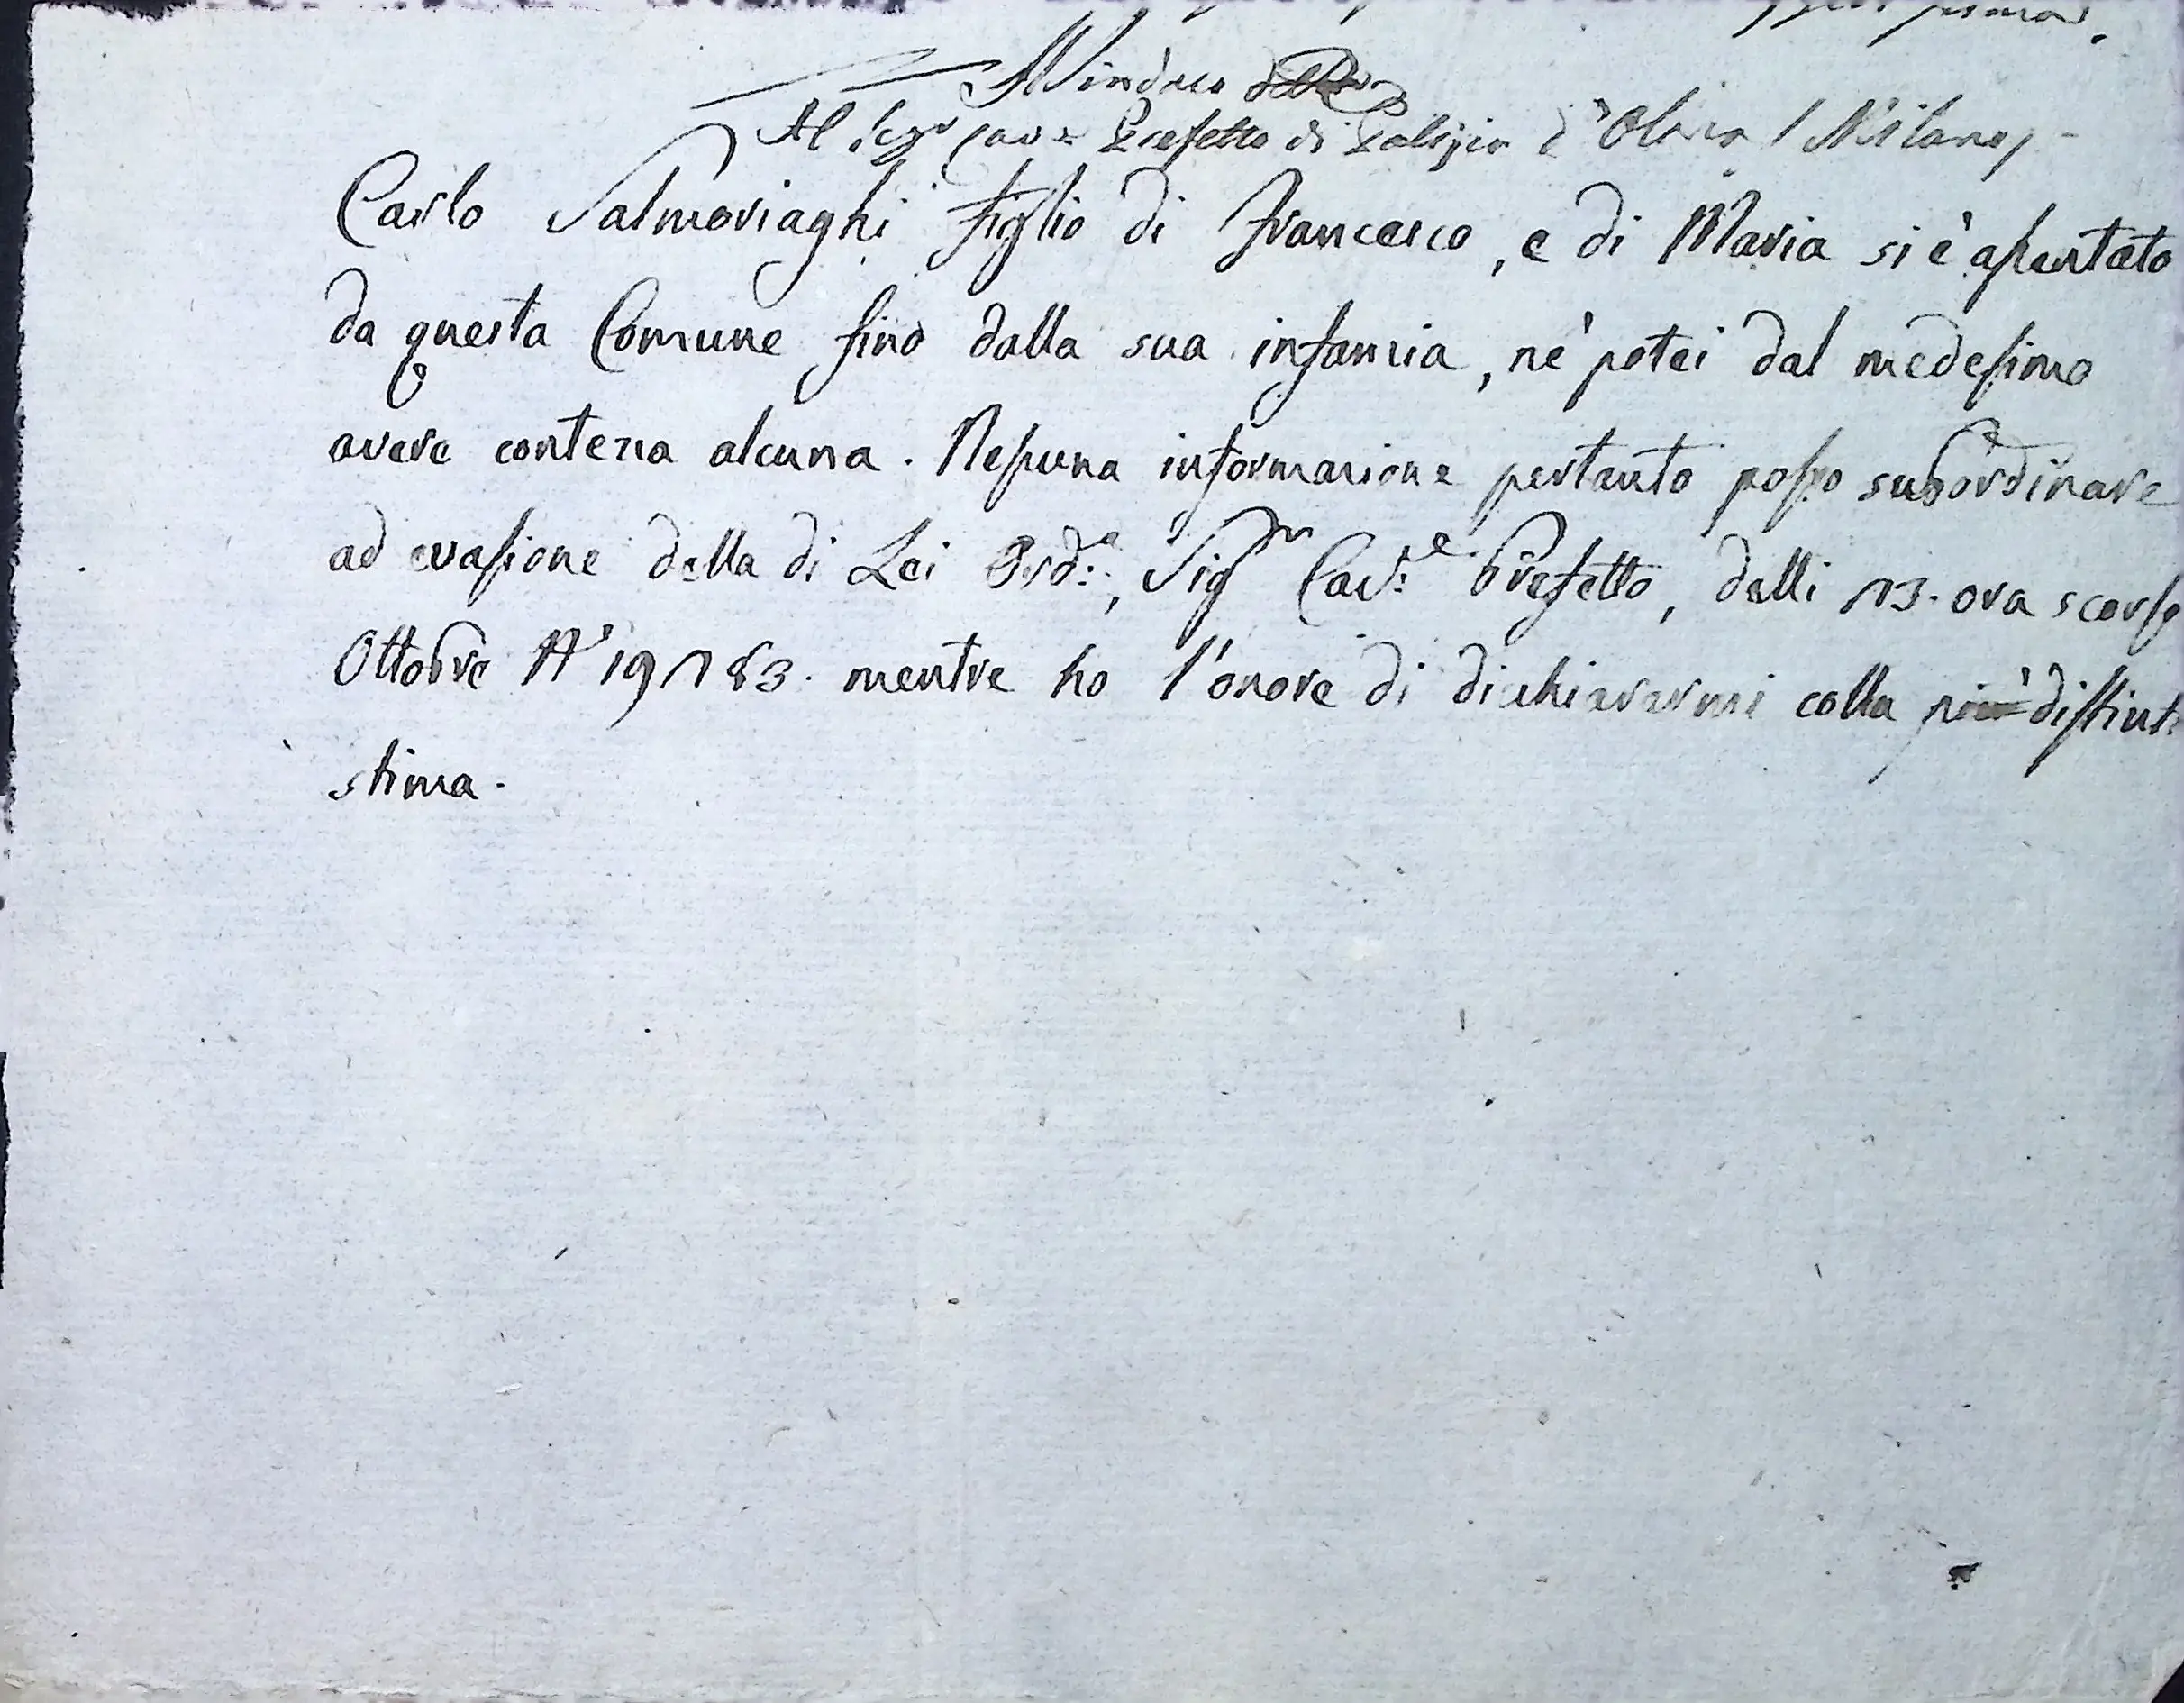 Il Sindaco
Al Sigr Cave Prefetto di Polizia d'Olona / Milano /
Carlo Salmoriaghi figlio di Francesco, e di Maria si è assentato
da questa Comune fino dalla sua infanzia, nè potei dal medesimo
avere contezza alcuna. Nessuna informazione pertanto posso subordinare
ad evasione della di Lei Ordª:, Sigr Cav:e Prefetto, delli 13. ora scorso
Ottobre N° 19183. mentre ho l'onore di dichiararmi colla più distint
stima.